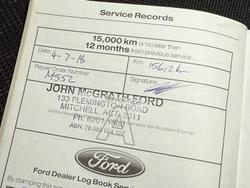 Service Records
15,000 km or no later than
12 months from previous service
Date: 4-7-18
Kms:
Repair Order Number: M552
Signature:
JOHN McGRATH FORD
133 FLEMINGTON ROAD
MITCHELL ACT 2911
Ph:
ABN:
Ford
Ford Dealer Log Book